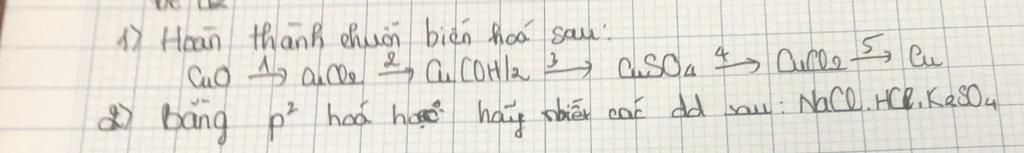 1) Hoàn thành chuỗi biến hoá sau:
CuO 1→ CuCl2 2→ Cu(OH)2 3→ CuSO4 4→ CuCl2 5→ Cu
2) bằng p² hoá học hãy nhiết các dd sau: NaCl, HCl, K2SO4